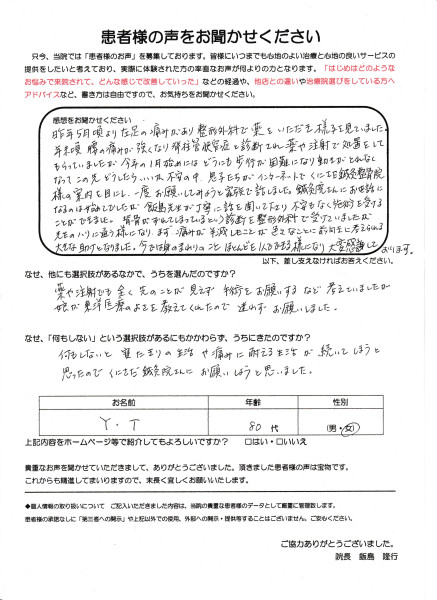 患者様の声をお聞かせください
只今、当院では「患者様のお声」を募集しております。皆様にいつまでも心地のよい治療と心地の良いサービスの
提供をしたいと考えており、実際に体験された方の率直なお声が何よりの力となります。「はじめはどのような
お悩みで来院されて、どんな感じで改善していった」などの経過や、他店との違いや治療院選びをしている方へ
アドバイスなど、書き方は自由ですので、お気持ちをお聞かせください。
感想をお聞かせください
昨年5月頃より左足の痛みがあり整形外科で薬をいただき様子を見ていました。
年末頃 腰の痛みが強くなり脊柱管狭窄症と診断され薬や注射で処置をして
もらっていましたが 今年の1月始めには どうにも歩行が困難になり
なって この先どうしたらいいか 不安の中、息子たちがインターネットでくにたち鍼灸整骨院
様の案内を目にし、一度お願いしてみようと緊張で訪しました。鍼灸院さんにお世話に
なるのは初めてでしたが 飯島先生が丁寧に話を聞いて下さり不安もなく施術を受ける
ことができました。背骨がずれてしまっているという診断を整形外科で受けていましたが
先生の 様になり、まず痛みが半減したことが 前向きに考えられる
大きな助けとなりました。今では身のまわりのこと ほとんど 様になり 大変感謝しております。
以下、差し支えなければお答えください。
なぜ、他にも選択肢があるなかで、うちを選んだのですか？
薬や注射でも全く先のことが見えず 手術をお願いするなど考えていましたが
娘が東洋医療のよさを教えてくれたので 迷わずお願いしました。
なぜ、「何もしない」という選択肢があるにもかかわらず、うちにきたのですか？
何もしないと寝たきりの生活や痛みに耐える生活が続いてしまうと
思ったので くにたち鍼灸院さんにお願いしようと思いました。
お名前 年齢 性別
Y・T 80代 (男・女)
上記内容をホームページ等で紹介してもよろしいですか？ □はい・□いいえ
貴重なお声を聞かせていただきまして、ありがとうございました。頂きました患者様の声は宝物です。
これからも精進してまいりますので、末長く宜しくお願いいたします。
◆個人情報の取り扱いについて ご記入いただきました内容は、当院の貴重な患者様のデータとして厳重に管理致します。
患者様の承諾なしに「第三者への開示」や上記以外での使用、外部への開示・提供等することはございません。ご安心ください。
ご協力ありがとうございました。
院長 飯島 隆行